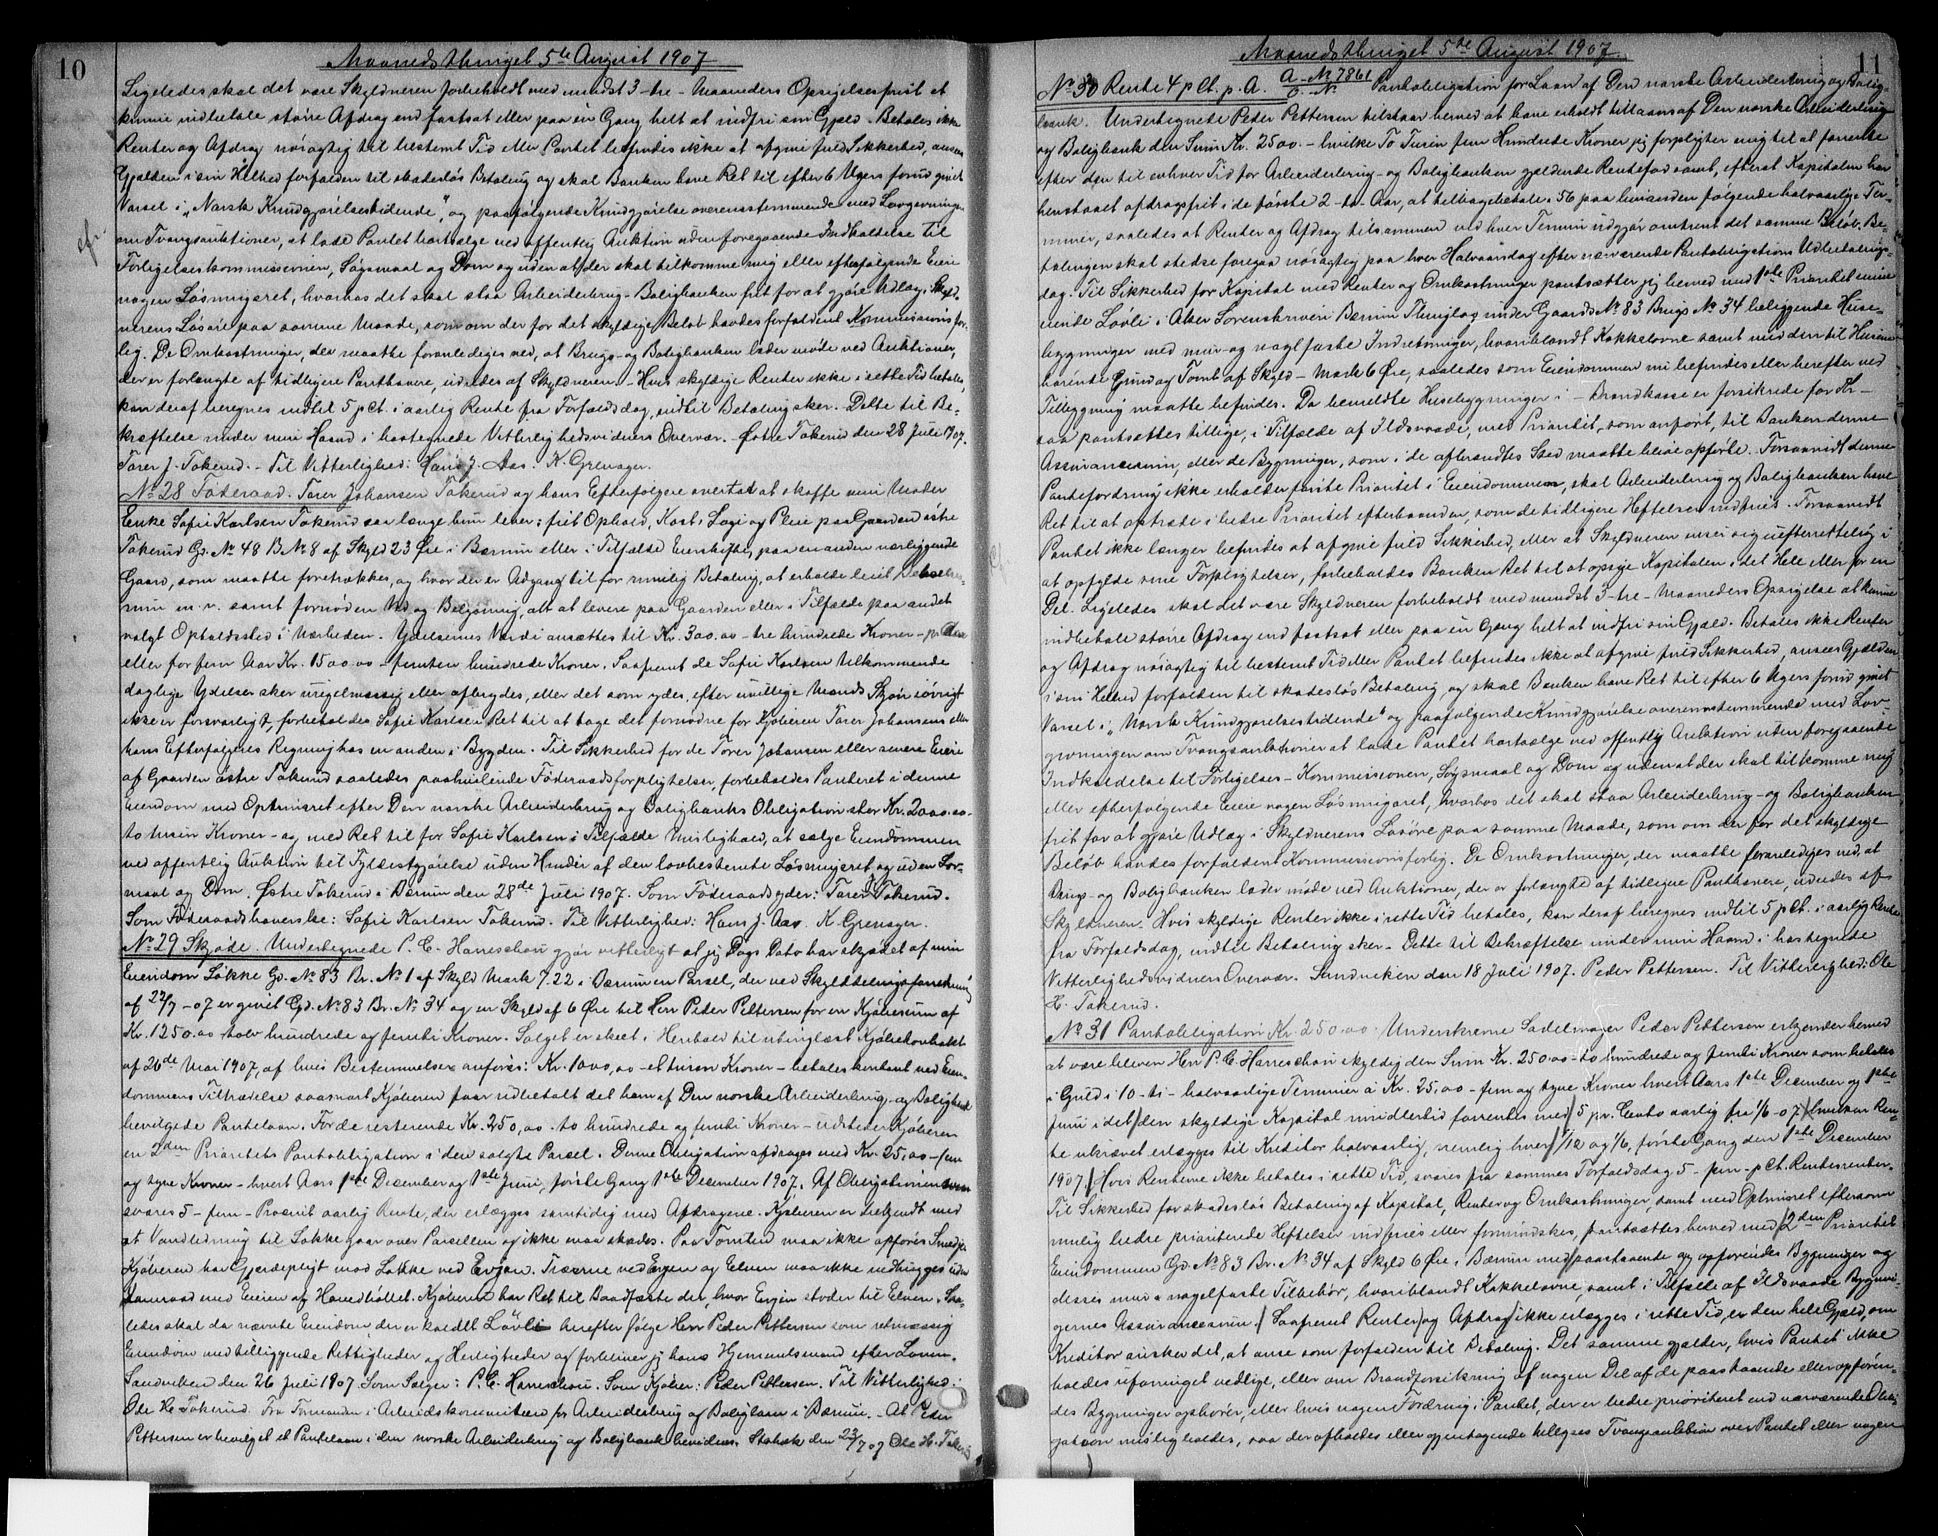 10
Maanedsthinget 5te August 1907
Ligeledes skal det være Skyldneren forbeholdt med mindst 3-tre-Maaneders Opsigelsesfrist at
kunne indbetale större Afdrag end fastsat eller paa en Gang helt at indfri sin Gjæld. Betales ikke
Renter og Afdrag nöiagtig til bestemt Tid eller Pantet befindes ikke at afgive fuld Sikkerhed, ansees
Gjælden i sin Helhed forfalden til skadeslös Betaling og skal Banken have Ret til efter 6 Ugers forud givet
Varsel i "Norsk Kundgjörelsestidende", og paafölgende Kundgjörelse overensstemmende med Lovgivningen
om Tvangsauktioner, at lade Pantet bortsælge ved offentlig Auktion uden foregaaende Indkaldelse til
cfr.
Forligelseskommissionen, Sögsmaal og Dom og uden at der skal tilkomme mig eller efterfölgende Eiere
nogen Lösningsret, hvorhos det skal staa Arbeiderbrug- Boligbanken frit for at gjöre Udlæg i Skyld-
nerens Lösöre paa samme Maade, som om der for det skyldige Belöb havdes forfaldent Kommissionsfor-
lig. De Omkostninger, der maatte foranlediges ved, at Brugs- og Boligbanken lader möde ved Auktioner,
der er forlangte af tidligere Panthavere, udredes af Skyldneren. Hvis skyldige Renter ikke i rette Tid betales,
kan deraf beregnes indtil 5 pCt. i aarlig Rente fra Forfaldsdag, indtil Betaling sker. Dette til Be-
kræftelse under min Haand i hostegnede Vitterlighedsvidners Overvær. Östre Tokerud den 28 Juli 1907.
Torer J. Tokerud. - Til Vitterlighed: Hans J. Aas. K. Grenager.
No 28 Föderaad. Torer Johansen Tokerud og hans Efterfölgere overtat at skaffe min Moder
Enke Sofie Karlsen Tokerud saa længe hun lever: frit Ophold, Kost, Logi og Pleie paa Gaarden östre
Tokerud Gd. No 48 B No 8 af Skyld 23 Öre i Bærum eller i Tilfælde Eierskifte, paa en anden nærliggende
Gaard, som maatte foretrækkes, og hvor der er Adgang til for rimelig Betaling, at erholde leiet Beboelses-
rum m.v. samt fornöden Ved og Belysning, alt at levere paa Gaarden eller i Tilfælde paa andet
valgt Opholdssted i Nærheden. Ydelsernes Værdi ansættes til Kr. 300,00 - tre hundrede Kroner - pr. Aar
eller for fem Aar Kr. 1500,00 - femten hundrede Kroner. Saafremt de Sofie Karlsen tilkommende
daglige Ydelser sker uregelmæssig eller afbrydes, eller det som ydes, efter uvillige Mænds Skjön iövrigt
ikke er forsvarligt, forbeholdes Sofie Karlsen Ret til at tage det fornödne for Kjöberen Torer Johansens eller
hans Efterfölgeres Regning hos en anden i Bygden. Til Sikkerhed for de Torer Johansen eller senere Eiere
af Gaarden östre Tokerud saaledes paahvilende Föderaadsforpligtelser, forbeholdes Panteret i denne
Eiendom med Optrinsret efter Den norske Arbeiderbrug og Boligbanks Obligation stor Kr. 2000,00-
to tusin Kroner - og med Ret til for Sofie Karlsen i Tilfælde Misligheld, at sælge Eiendommen
ved offentlig Auktion til Fyldestgjörelse uden Hinder af den lovbestemte Lösningsret og uden Lov-
maal og Dom. Östre Tokerud i Bærum den 28de Juli 1907. Som Föderaadsyder: Torer J. Tokerud.
Som Föderaadshaverske: Sofie Karlsen Tokerud. Til Vitterlighed: Hans J. Aas. K. Grenager.
No 29 Skjöde. Undertegnede P. C. Harreschou gjör vitterligt at jeg Dags Dato har skjödet af min
Eiendom Lökke Gd. No 83 Br. No 1 af Skyld Mark 7.22 i Bærum en Parsel, der ved Skylddelingsforretning
af 22/7-07 er givet Gd. No 83 Br. No 34 og en Skyld af 6 Öre til Herr Peder Pettersen for en Kjöbesum af
Kr. 1250,00 tolv hundrede og femti Kroner. Salget er skeet i Henhold til utinglæst Kjöbekontrakt
af 26de Mai 1907, af hvis Bestemmelser anföres: Kr. 1000,00 - et tusin Kroner - betales kontant ved Eien-
dommens Tiltrædelse saasnart Kjöberen faar udbetalt det ham af Den norske Arbeiderbrug- og Boligbank
bevilgede Pantelaan. For de resterende Kr. 250,00 - to hundrede og femti Kroner - udsteder Kjöberen
en 2den Prioritets Pantobligation i den solgte Parsel. Denne Obligation afdrages med Kr. 25,00 - fem
og tyve Kroner - hvert Aars 1ste December og 1ste Juni, förste Gang 1ste December 1907. Af Obligationen
svares 5 - fem - Procent aarlig Rente, der erlægges samtidig med Afdragene. Kjöberen er bekjendt med
at Vandledning til Lökke gaar over Parsellen og ikke maa skades. Paa Tomten maa ikke opföres Smedje.
Kjöberen har Gjerdepligt mod Lökke ved Evjen. Træerne ved Evjen og Elven maa ikke nedhugges uden
Samraad med Eieren af Hovedböllet. Kjöberen har Ret til Baadfæste der, hvor Evjen stöder til Elven. Saa-
ledes skal da nævnte Eiendom, der er kaldet Lövli herefter fölge Herr Peder Pettersen som retmæssig
Eiendom med tilliggende Rettigheder og Herligheder og forbliver jeg hans Hjemmelsmand efter Loven.
Sandviken den 26 Juli 1907. Som Sælger: P. C. Harreschou. Som Kjöber: Peder Pettersen. Til Vitterlighed:
Ole H. Tokerud. Fra Formanden i Arbeidskomiteen for Arbeiderbrug og Boliglaan i Bærum. - At Peder
Pettersen er bevilget et Pantelaan i den norske Arbeiderbrug og Boligbank bevidnes. Stabæk den 23/7 07 Ole H. Tokerud
11
Maanedsthinget 5te August 1907
No 30 Rente 4 pCt. p. A. a-No 7861 Pantobligation for Laan af Den norske Arbeiderbrug og Bolig-
b-No
bank. Undertegnede Peder Pettersen tilstaar herved at have erholdt tillaans af Den norske Arbeiderbrug
og Boligbank den Sum Kr. 2500 - hvilke To Tusin fem Hundrede Kroner jeg forpligter mig til at forrente
efter den til enhver Tid for Arbeiderbrug- og Boligbanken gjældende Rentefod samt, efterat Kapitalen har
henstaaet afdragsfrit i de förste 2-to-Aar, at tilbagebetale i 56 paa hinanden fölgende halvaarlige Ter-
miner, saaledes at Renter og Afdrag tilsammen ved hver Termin udgjör omtrent det samme Belöb. Be-
talingen skal stedse foregaa nöiagtig paa hver Halvaarsdag efter nærværende Pantobligations Udbetalings-
dag. Til Sikkerhed for Kapital med Renter og Omkostninger pantsætter jeg herved med 1ste Prioritet min
eiende Lövli i Aker Sorenskriveri Bærum Thinglag under Gaards No 83 Brugs No 34 beliggende Huse-
bygninger med mur- og naglfaste Indretninger, hvoriblandt Kakkelovne samt med den til Husene
hörende Grund og Tomt af Skyld - Mark 6 Öre, saaledes som Eiendommen nu befindes eller herefter ved
Tilbygning maatte befindes. Da bemeldte Husebygninger i - Brandkasse er forsikrede for Kr -
saa pantsættes tillige, i Tilfælde af Ildsvaade, med Prioritet, som anfört, til Banken denne
Assurancesum, eller de Bygninger, som i de afbrændtes Sted maatte blive opförte. Forsaavidt denne
Pantefordring ikke erholder förste Prioritet i Eiendommen, skal Arbeiderbrug og Boligbanken have
Ret til at optræde i bedre Prioritet efterhaanden, som de tidligere Heftelser indfries. Forsaavidt
Pantet ikke længer befindes at afgive fuld Sikkerhed, eller at Skyldneren viser sig uefterrettelig i
at opfylde sine Forpligtelser, forbeholdes Banken Ret til at opsige Kapitalen i det Hele eller for en
Del. Ligeledes skal det være Skyldneren forbeholdt med mindst 3-tre-Maaneders Opsigelse at kunne
indbetale större Afdrag end fastsat eller paa en Gang helt at indfri sin Gjæld. Betales ikke Renter
og Afdrag nöiagtig til bestemt Tid eller Pantet befindes ikke at afgive fuld Sikkerhed, ansees Gjælden
i sin Helhed forfalden til skadeslös Betaling og skal Banken have Ret til efter 6 Ugers forud givet
Varsel i "Norsk Kundgjörelsestidende" og paafölgende Kundgjörelse overensstemmende med Lov-
givningen om Tvangsauktioner at lade Pantet bortsælge ved offentlig Auktion uden foregaaende
Indkaldelse til Forligelses-Kommissionen, Sögsmaal og Dom og uden at der skal tilkomme mig
eller efterfölgende Eiere nogen Lösningsret, hvorhos det skal staa Arbeiderbrug- og Boligbanken
frit for at gjöre Udlæg i Skyldnerens Lösöre paa samme Maade, som om der for det skyldige
Belöb havdes forfaldent Kommissionsforlig. De Omkostninger, der maatte foranlediges ved, at
Brug- og Boligbanken lader möde ved Auktioner, der er forlangte af tidligere Panthavere, udredes af
Skyldneren. Hvis skyldige Renter ikke i rette Tid betales, kan deraf beregnes indtil 5 pCt. i aarlig Rente
fra Forfaldsdag, indtil Betaling sker. Dette til Bekræftelse under min Haand i hostegnede
Vitterlighedsvidners Overvær. Sandviken den 18 Juli 1907. Peder Pettersen. Til Vitterlighed: Ole
H. Tokerud.
No 31 Pantobligation Kr. 250,00. Underskrevne Sadelmager Peder Pettersen erkjender herved
at være bleven Herr P. C. Harreschou skyldig den Sum Kr. 250,00 - to hundrede og femti Kroner som betales
i Guld i 10 - ti - halvaarlige Terminer a Kr. 25,00 - fem og tyve Kroner hvert Aars 1ste December og 1ste
Juni i det (den skyldige Kapital imidlertid forrentes med) 5 pr. Cento aarlig fra 1/6-07 hvilken Ren-
te ukrævet erlægges til Kreditor halvaarlig, nemlig hver 1/12 og 1/6, förste Gang den 1ste December
1907. Hvis Renterne ikke betales i rette Tid, svares fra sammes Forfaldsdag 5 - fem - pCt. Rentesrenter.
Til Sikkerhed for skadeslös Betaling af Kapital, Renter og Omkostninger, samt med Optrinsret eftersom
mulig bedre prioriterede Heftelser indfries eller formindskes, pantsættes herved med 2den Prioritet
Eiendommen Gd. No 83 Br. No 34 af Skyld 6 Öre i Bærum med paastaaende og opförendes Bygninger og
disses mur- & nagelfaste Tilbehör, hvoriblandt Kakkelovne, samt i Tilfælde af Ildsvaade Bygnin-
gernes Assurancesum. (Saafremt Renter) og Afdrag ikke erlægges i rette Tid, er den hele Gjæld, om
Kreditor önsker det, at anse som forfalden til Betaling. Det samme gjælder, hvis Pantet ikke
holdes uforringet vedlige, eller om Brandforsikring af nogen Del af de paastaaende eller opfören-
des Bygninger ophörer, eller hvis nogen Fordring i Pantet, der er bedre prioriteret end nærværende Obli-
gation misligholdes, saa der afholdes eller gjentagende tillyses Tvangsauktion over Pantet eller nogen